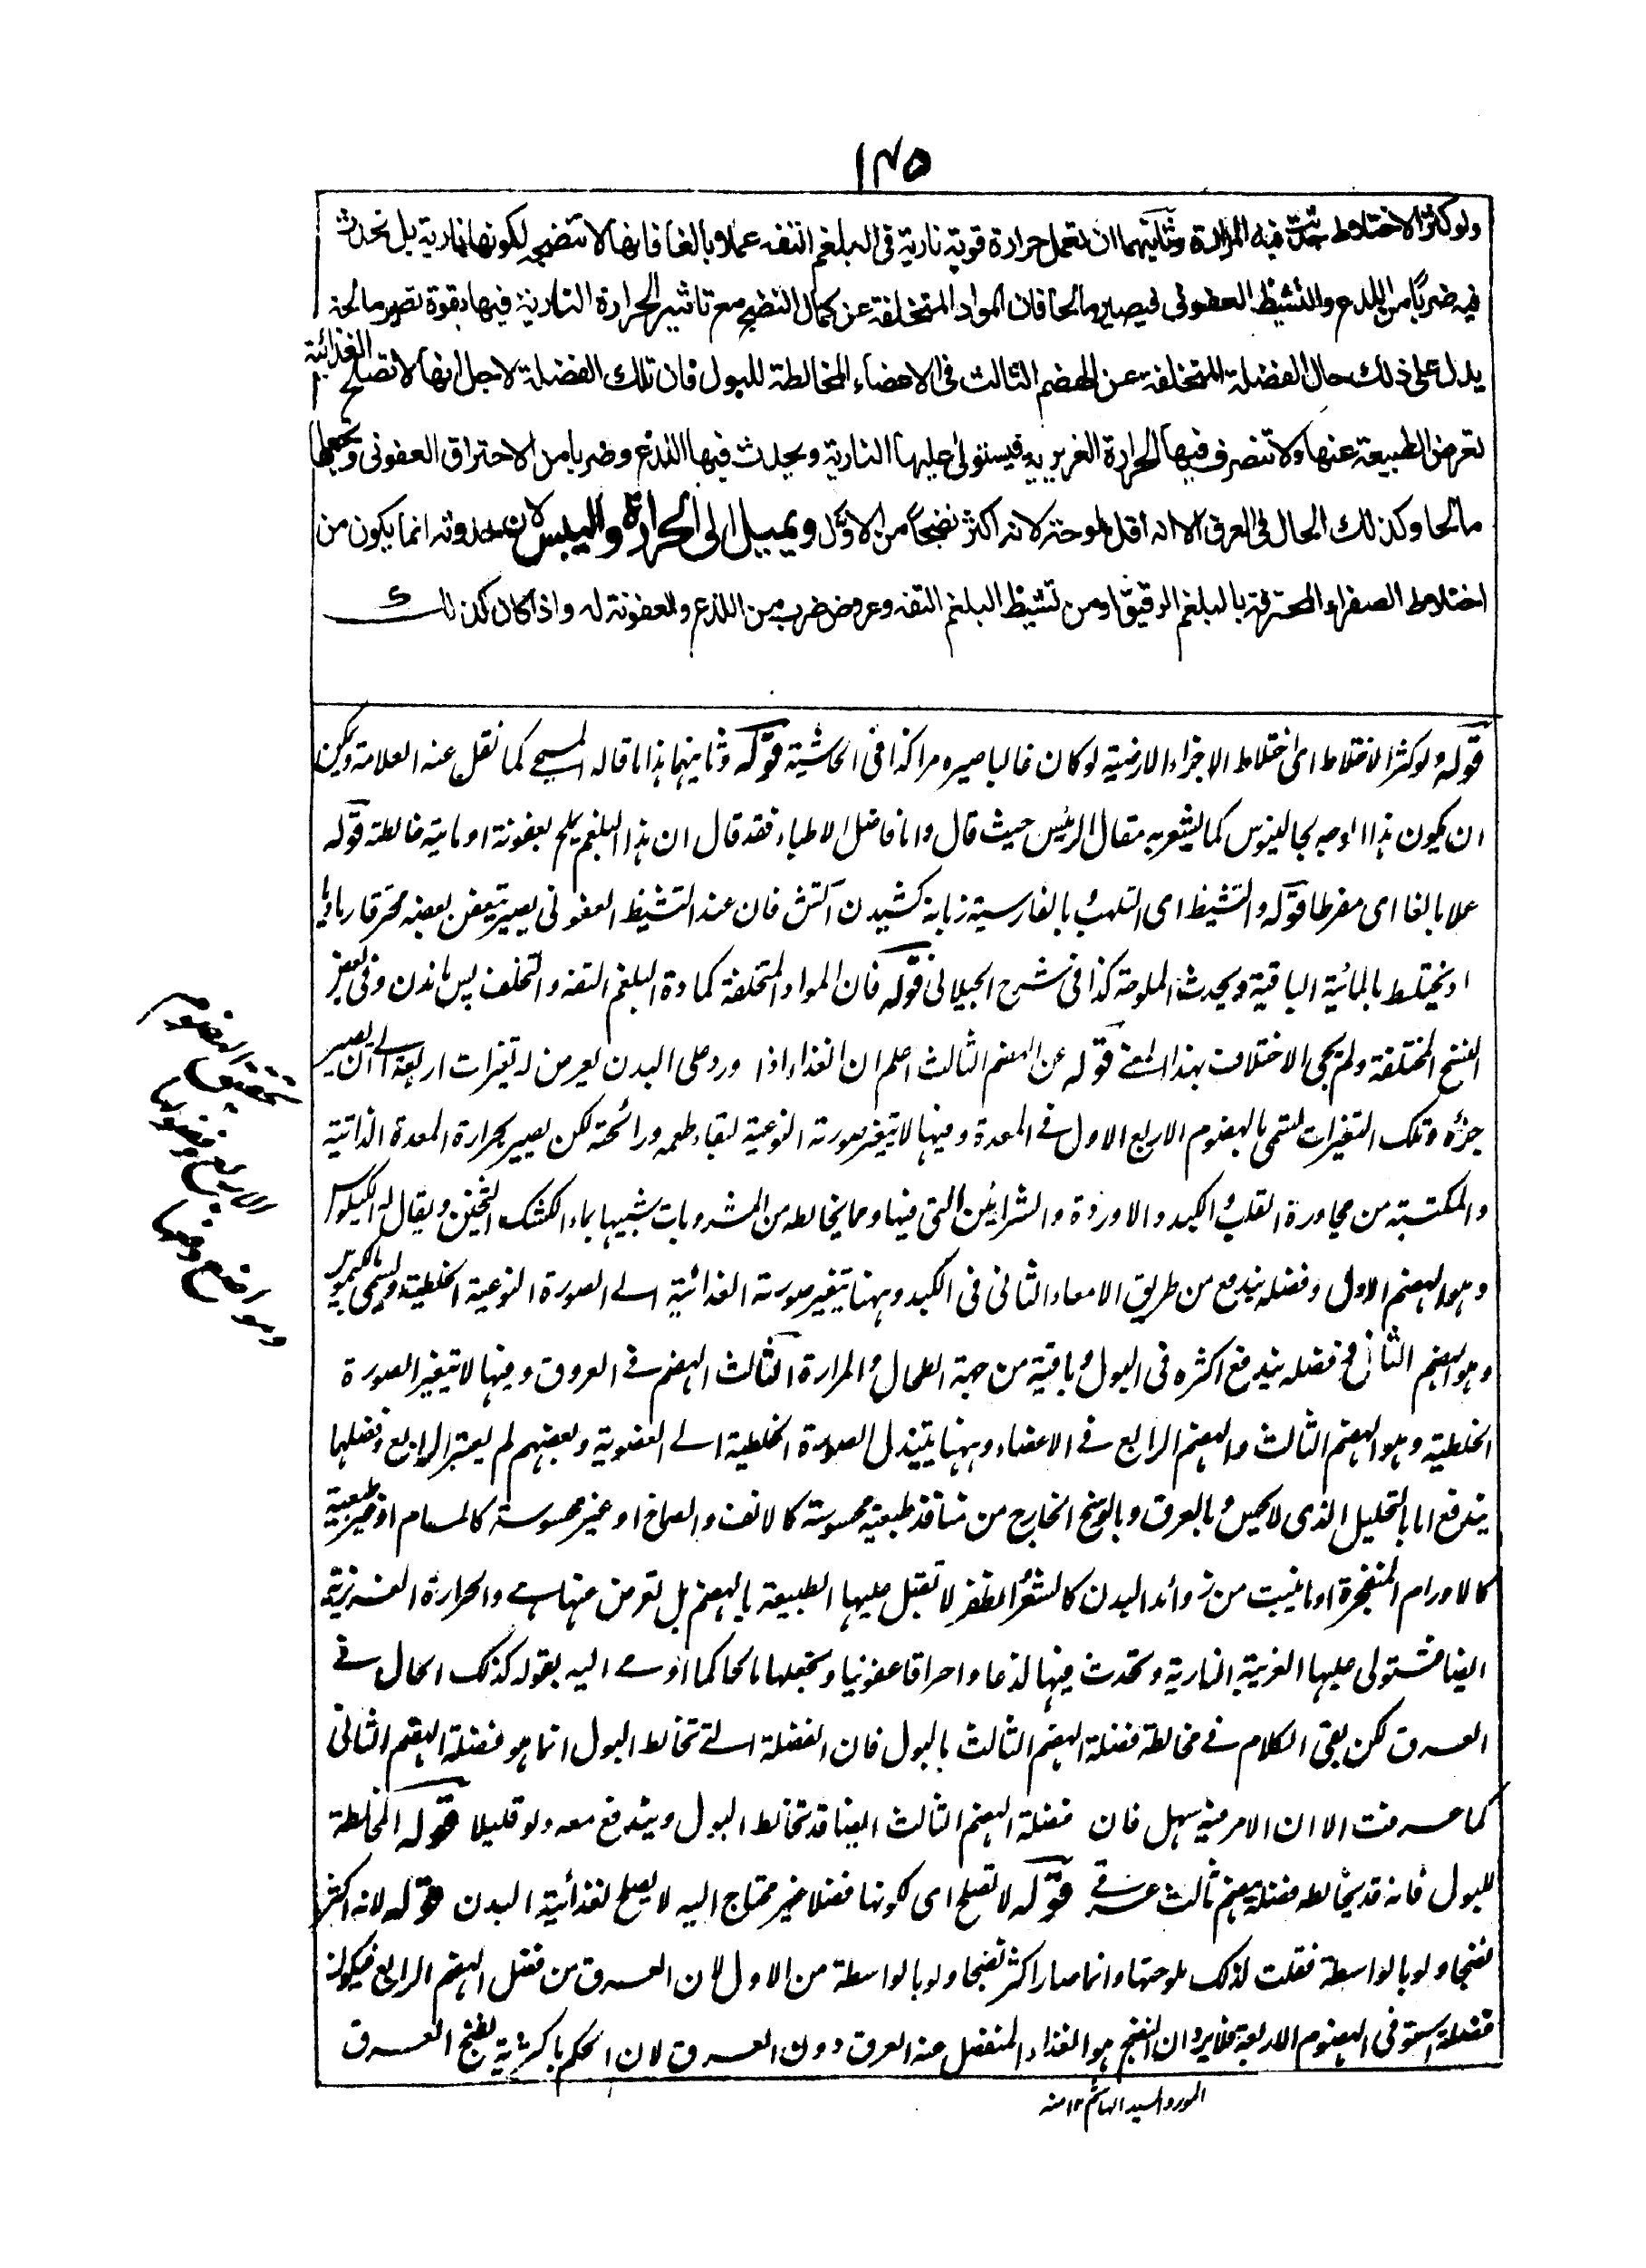 ١٣٥
ولو كثر الاختلاط حدثت فيه المرارة وثانيهما ان تعمل حرارة قوية نارية فى البلغم التفه عملا بالغا فانها لا تنضجه لكونها نارية بل تحدث
فيه ضربا من اللذع والتشيظ العفونى فيصير مالحا فان المواد المتخلفة عن كمال النضج مع تاثير الحرارة النارية فيها بقوة تصير مالحة
يدل على ذلك حال الفضلة المتخلفة عن الهضم الثالث فى الاعضاء المخالطة للبول فان تلك الفضلة لاجل انها لا تصلح الغذائية
تعرض الطبيعة عنها ولا تتصرف فيها الحرارة الغريزية فيستولى عليها النارية ويحدث فيها اللذع وضربا من الاحتراق العفونى وتجعلها
مالحا وكذلك الحال فى العرق الا انه اقل ملوحة لانه اكثر نضجا من الاول ويميل الى الحرارة واليبس لان حدوثه انما يكون من
اختلاط الصفراء المحترقة بالبلغم الرقيق او من تشيظ البلغم التفه وعروض ضرب من اللذع والعفونة له واذا كان كذلك
قوله ولو كثر الاختلاط اى اختلاط الاجزاء الارضية لو كان غالبا صيره مرا كذا فى الحاشية قوله وثانيهما هذا ما قاله المسيحى كما نقل عنه العلامة ويمكن
ان يكون هذا الوجه لجالينوس كما يشعر به مقال الرئيس حيث قال واما فاضل الاطباء فقد قال ان هذا البلغم يملح لعفونة او مائية خالطته قوله
عملا بالغا اى مفرطا قوله والتشيظ اى التلهب بالفارسية زبانه كشيدن آتش فان عند التشيظ العفونى يصير بعض بعضه محترقا رماديا
او يختلط بالمائية الباقية ويحدث الملوحة كذا فى شرح الجيلانى قوله فان المواد المتخلفة كمادة البلغم التفه والتخلف پس ماندن وفى بعض
النسخ المختلفة ولم يجئ الاختلاف بهذا المعنى قوله عن الهضم الثالث اعلم ان الغذاء اذا ورد على البدن يعرض له تغيرات اربعة الى ان يصير
جزؤه وتلك التغيرات تسمى بالهضوم الاربع الاول فى المعدة وفيها لا يتغير صورته النوعية لبقاء طعمه ورائحته لكن يصير بحرارة المعدة الذاتية
والمكتسبة من مجاورة القلب والكبد والاوردة والشرائين التى فيها وما يخالطه من المشروبات شبيها بماء الكشك الثخين ويقال له الكيلوس
وهو الهضم الاول وفضله يندفع من طريق الامعاء الثانى فى الكبد وههنا يتغير صورته الغذائية الى الصورة النوعية الخلطية ويسمى بالكيموس
وهو الهضم الثانى وفضله يندفع اكثره فى البول وباقيه من جهة الطحال والمرارة الثالث الهضم فى العروق وفيها لا يتغير الصورة
الخلطية وهو الهضم الثالث والهضم الرابع فى الاعضاء وههنا يتبدل الصورة الخلطية الى العضوية وبعضهم لم يعتبر الرابع وفضلها
يندفع اما بالتحليل الذى لا يحس وبالعرق وبالوسخ الخارج من منافذ طبيعية محسوسة كالانف والصماخ او غير محسوسة كالمسام او غير طبيعية
كالاورام المنفجرة او ما ينبت من زوائد البدن كالشعر والظفر لا تقبل عليها الطبيعة بالهضم بل تعرض عنها والحرارة الغريزية
ايضا فتستولى عليها الغريبة النارية وتحدث فيها لذعا واحراقا عفونيا وتجعلها مالحا كما اومى اليه بقوله كذلك الحال فى
العرق لكن بقى الكلام فى مخالطة فضلة الهضم الثالث بالبول فان الفضلة التى تخالط البول انما هو فضلة الهضم الثانى
كما عرفت الا ان الامر فيه سهل فان فضلة الهضم الثالث ايضا قد تخالط البول ويندفع معه ولو قليلا قوله المخالطة
للبول فانه قد يخالطه فضلة هضم ثالث عرقى قوله لا تصلح اى لكونها فضلا غير محتاج اليه لا يصلح لغذائية البدن قوله لانه اكثر
نضجا ولو بالواسطة فقلت لذلك ملوحتها وانما صار اكثر نضجا ولو بالواسطة من الاول لان العرق من فضل الهضم الرابع فيكون
فضلة استوفى الهضوم الاربعة فلا يرد ان النضج هو الغذاء المنفصل عنه العرق دون العرق لان الحكم باكثرية نضج العرق
المورد السيد الهاشم ١٢ منه
تحقيق الهضوم
الاربع وفضولها
ومواضع دفعها